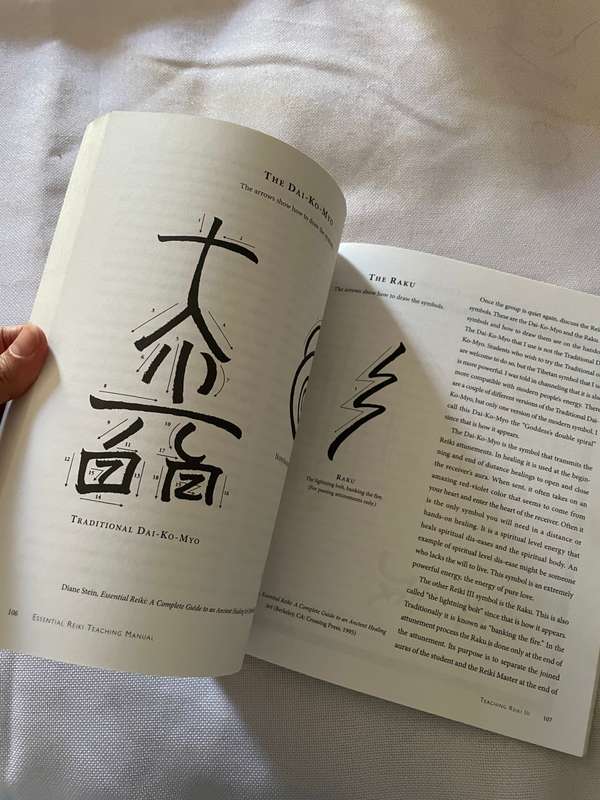 THE DAI-KO-MYO
The arrows show how to draw the
TRADITIONAL DAI-KO-MYO
Diane Stein, Essential Reiki: A Complete Guide to an Ancient Healing
106 ESSENTIAL REIKI TEACHING MANUAL
THE RAKU
The arrows show how to draw the symbols.
RAKU
The lightning bolt, banking the fire.
(For passing attunements only.)
Essential Reiki: A Complete Guide to an Ancient Healing
Art (Berkeley, CA: Crossing Press, 1995)
Once the group is quiet again, discuss the Reiki
symbols. These are the Dai-Ko-Myo and the Raku.
symbols and how to draw them are on the
The Dai-Ko-Myo that I use is not the Traditional Dai-
Ko-Myo. Students who wish to try the Traditional
are welcome to do so, but the Tibetan symbol that I use
is more powerful. I was told in channeling that it is also
more compatible with modern people's energy. There
are a couple of different versions of the Traditional Dai-
Ko-Myo, but only one version of the modern symbol. I
call this Dai-Ko-Myo the "Goddess's double spiral"
since that is how it appears.
The Dai-Ko-Myo is the symbol that transmits the
Reiki attunements. In healing it is used at the begin-
ning and end of distance healings to open and close
the receiver's aura. When sent, it often takes on an
amazing red-violet color that seems to come from
your heart and enter the heart of the receiver. Often it
is the only symbol you will need in a distance or
hands-on healing. It is a spiritual level energy that
heals spiritual dis-eases and the spiritual body. An
example of spiritual level dis-ease might be someone
who lacks the will to live. This symbol is an extremely
powerful energy, the energy of pure love.
The other Reiki III symbol is the Raku. This is also
called "the lightning bolt" since that is how it appears.
Traditionally it is known as "banking the fire." In the
attunement process the Raku is done only at the end of
the attunement. Its purpose is to separate the joined
auras of the student and the Reiki Master at the end of
TEACHING REIKI III 107